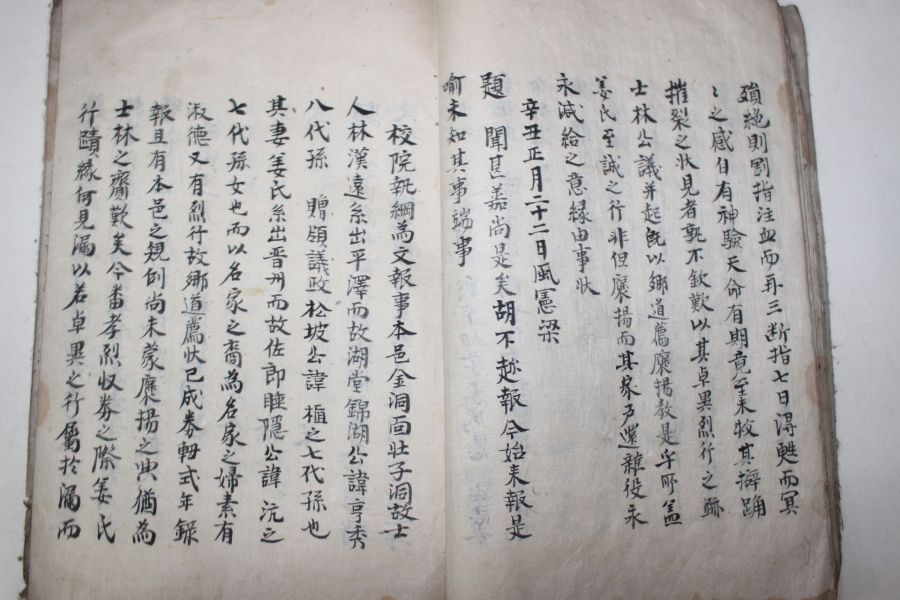 殞絶則割指注血而再三断指七日淂甦而冥
〻之感自有神驗天命有期竟至未救其擗踊
摧裂之状見者孰不欽歎以其卓異烈行之跡
士林公議并起旣以鄉道薦褒揚敎是乎所盖
姜氏至誠之行非但褒揚而其家戶還雜役永
永减給之意緣由事状
辛丑正月二十二日風憲梁
題 聞甚嘉尚是矣胡不趂報今始来報是
喻未知其事端事
校院執綱為文報事本邑金洞面壮子洞故士
人林漢遠系出平澤而故湖堂錦湖公諱亨秀
八代孫 贈領議政松坡公諱 㮒之七代孫也
其妻姜氏系出晋州而故佐郎睡隱公諱 沆之
七代孫女也而以名家之裔為名家之婦素有
淑德又有烈行故鄉道薦状已成券軸式年錄
報且有本邑之規例尚未蒙褒揚之典猶為
士林之齎歎矣今番孝烈収券之際姜氏
行蹟緣何見漏以若卓異之行屬扵漏而